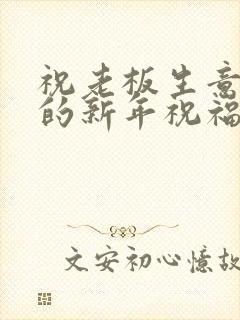 祝老板生意
的新年祝福
文安初心憶故